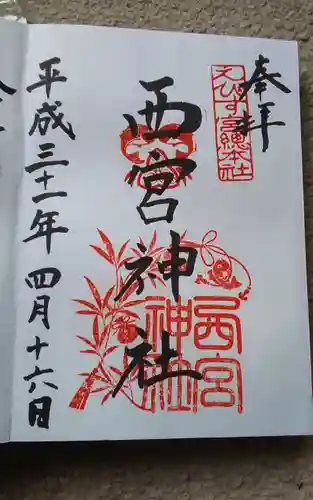 奉拝
えびす宮總本社
西宮神社
西宮神社
平成三十一年四月十六日